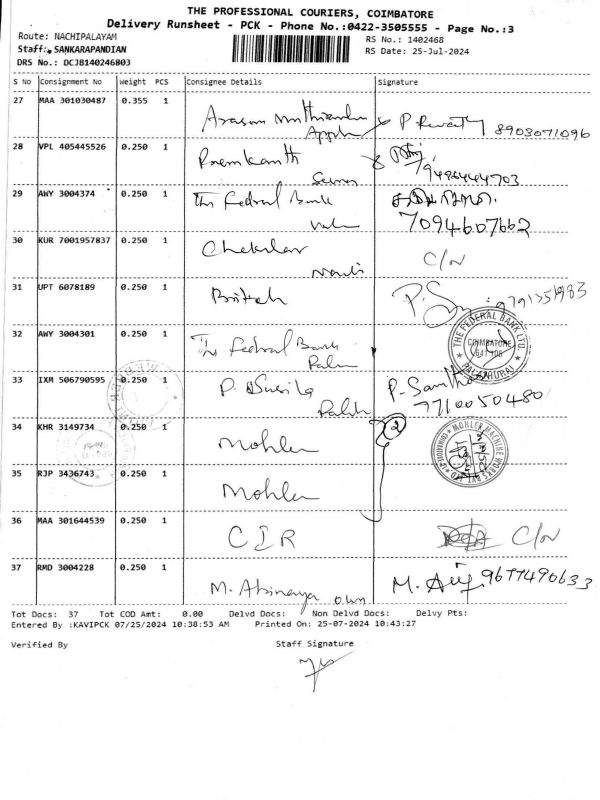 THE PROFESSIONAL COURIERS, COIMBATORE
Delivery Runsheet - PCK - Phone No.:0422-3505555 - Page No.:3
Route: NACHIPALAYAM
RS No.: 1402468
Staff: SANKARAPANDIAN
RS Date: 25-Jul-2024
DRS No.: DCJB140246803
S No Consignment No Weight PCS Consignee Details Signature
27 MAA 301030487 0.355 1
8903071096
28 VPL 405445526 0.250 1 Premkanth
29 AWY 3004374 0.250 1 The Federal Bank
7094607662
30 KUR 7001957837 0.250 1 C/N
31 UPT 6078189 0.250 1 British
32 AWY 3004301 0.250 1 The Federal Bank
THE FEDERAL BANK LTD.
COIMBATORE
33 IXM 506790595 0.250 1 P. Susila
7710050480
34 KHR 3149734 0.250 1 Mohler
2
MOHLER MACHINE WORKS
35 RJP 3436743 0.250 1 Mohler
36 MAA 301644539 0.250 1 CIR C/N
37 RMD 3004228 0.250 1 M. Abinaya own
9677490633
Tot Docs: 37 Tot COD Amt: 0.00 Delvd Docs: Non Delvd Docs: Delvy Pts:
Entered By :KAVIPCK 07/25/2024 10:38:53 AM Printed On: 25-07-2024 10:43:27
Verified By Staff Signature